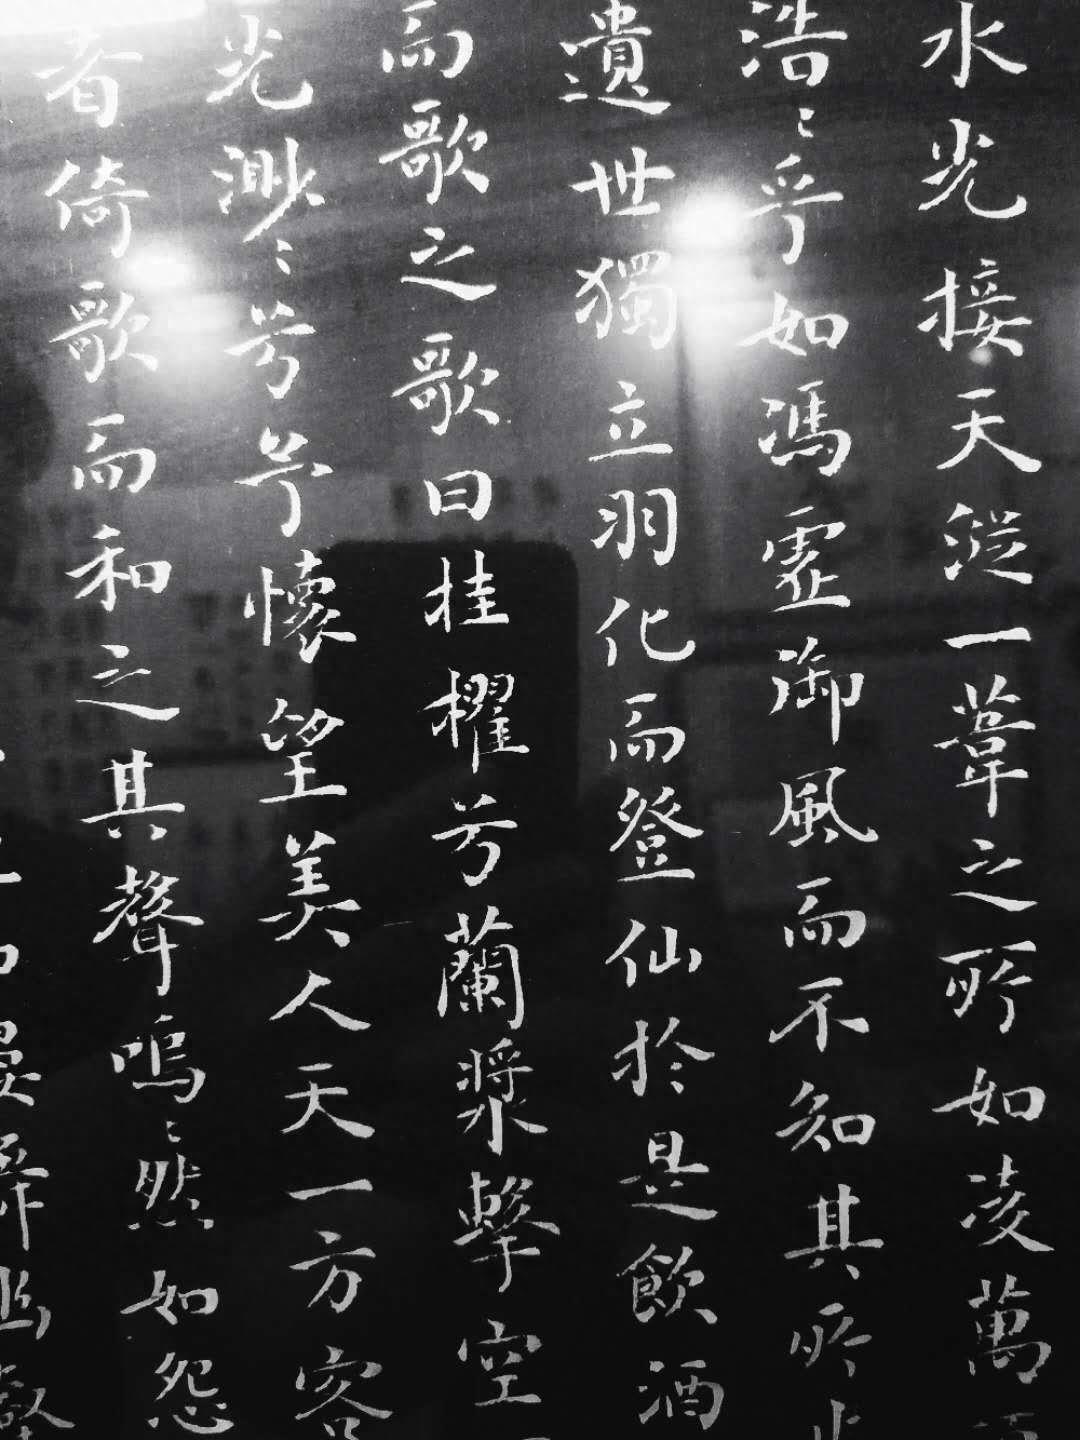 水光接天從一葦之所如凌萬
浩〻乎如馮虛御風而不知其所止
遺世獨立羽化而登仙於是飲酒
而歌之歌曰桂櫂兮蘭槳擊空
光渺〻兮予懷望美人天一方客
者倚歌而和之其聲嗚〻然如怨